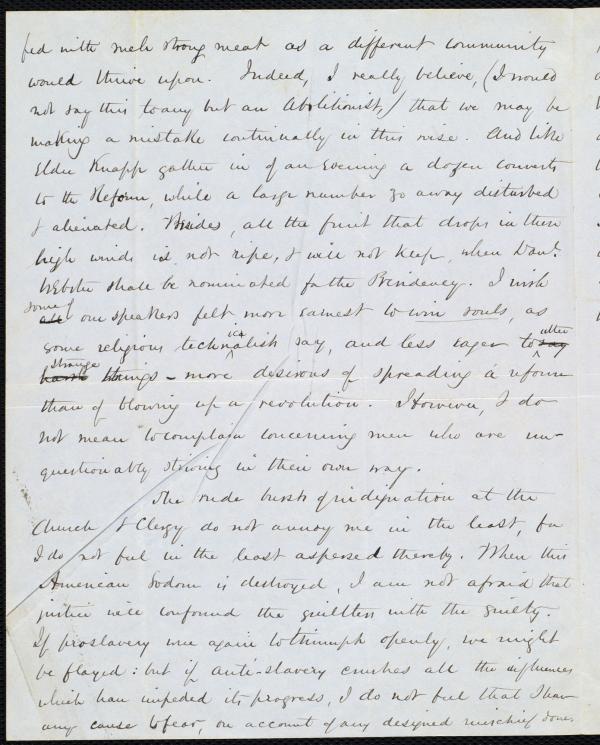 fed with such strong meat as a different community
would thrive upon. Indeed, I really believe, (I would
not say this to any but an Abolitionist,) that we may be
making a mistake continually in this wise. And like
Elder Knapp gather in of an evening a dozen converts
to the Reform, while a large number go away disturbed
& alienated. Besides, all the fruit that drops in these
high winds is not ripe, & will not keep, when Danl.
Webster shall be nominated for the Presidency. I wish
some of
all our speakers felt more earnest to win souls, as
some religious technicalists say, and less eager to utter say
strange
harsh things - more desirous of spreading a reform
than of blowing up a revolution. However, I do
not mean to complain concerning men who are un-
questionably striving in their own way.
The rude bursts of indignation at the
Church & Clergy do not annoy me in the least, for
I do not feel in the least aspersed thereby. When this
American Sodom is destroyed, I am not afraid that
justice will confound the guiltless with the guilty.
If proslavery were again to triumph openly, we might
be flayed: but if anti-slavery crushes all the influences
which have impeded its progress, I do not feel that I have
any cause to fear, on account of any designed mischief done